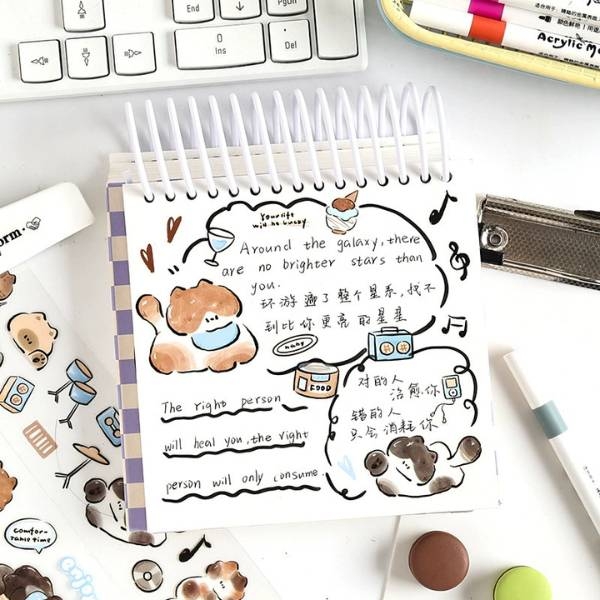 0
Ins
Del
Pg Dn
Acrylic
orm.
Your life
will be lucky
Around the galaxy, there
are no brighter stars than
you.
环游遍了整个星系,找不
到比你更亮的星星
FOOD
The right person
will heal you, the right
person will only consume
对的人
治愈你
错的人
只会消耗你
comfor-
table time